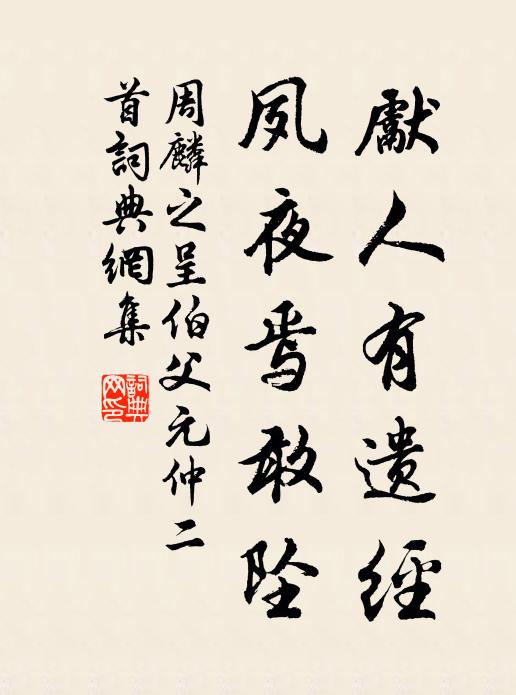 獻人有遺經
夙夜焉敢坠
周麟之呈伯父元仲二
首詞典網集
詞典网印